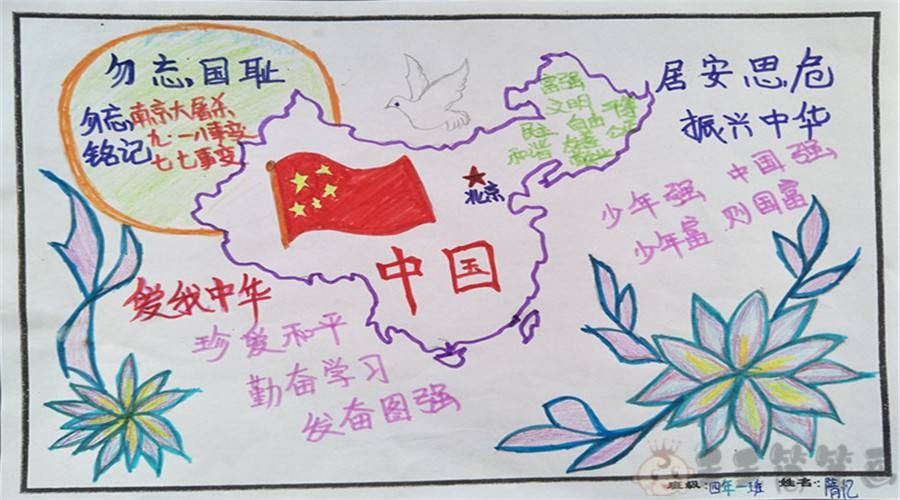 勿忘国耻
勿忘南京大屠杀
铭记九·一八事变
七七事变
富强
文明
民主 自由
和谐
北京
中国
居安思危
振兴中华
少年强 中国强
少年富 则国富
爱我中华
珍爱和平
勤奋学习
发奋图强
班级:四年一班 姓名:隋忆